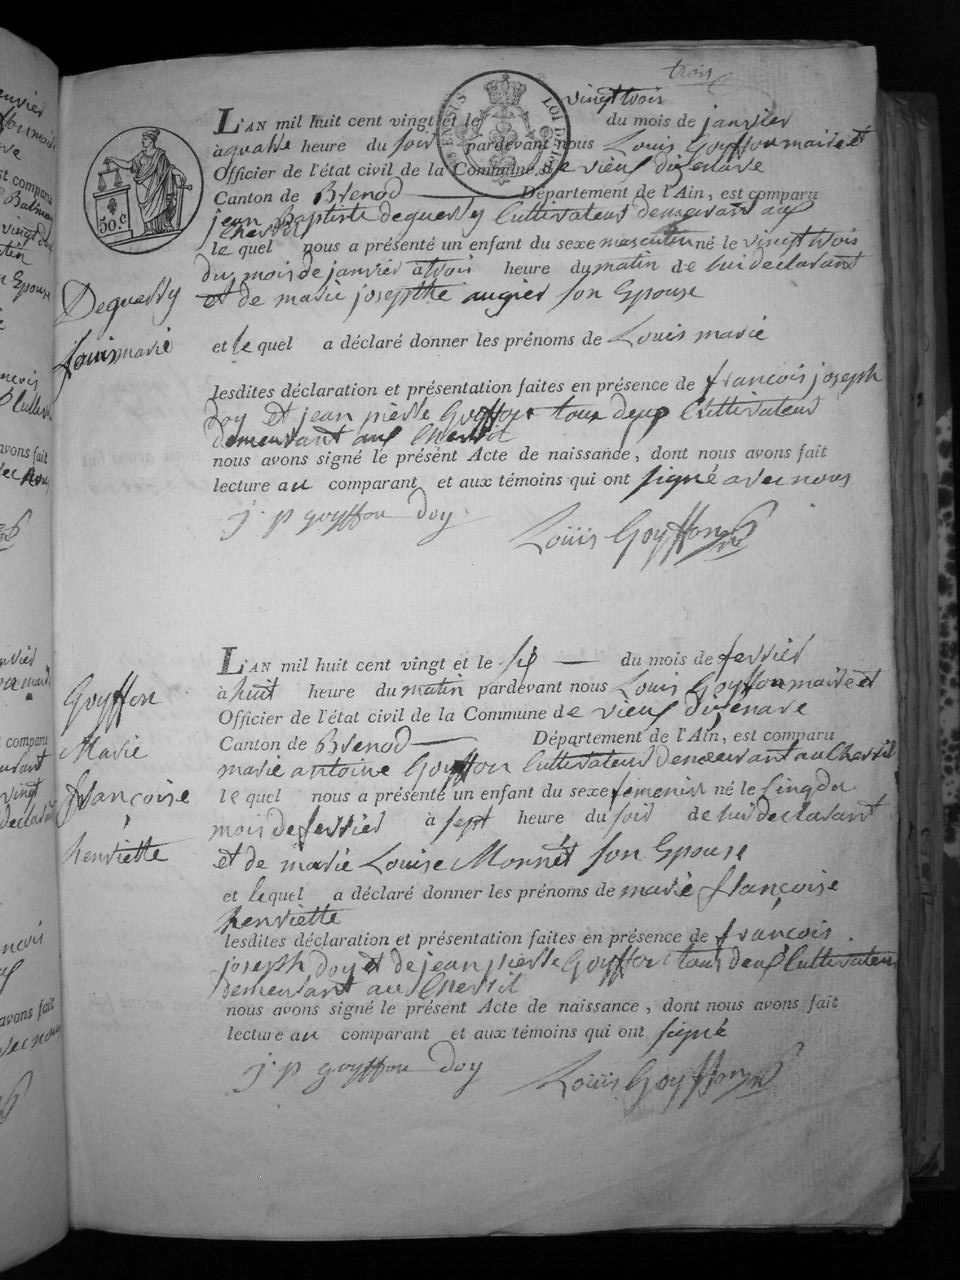 trois
vingt trois
L'AN mil huit cent vingt et le du mois de janvier
à quatre heure du soir pardevant nous Louis Goyffon maire et
Officier de l'état civil de la Commune de vieux dizenave
Canton de Brenod Département de l'Ain, est comparu
jean Baptiste deguerry Cultivateur demeurant aux
chervil
le quel nous a présenté un enfant du sexe masculin né le vingt trois
du mois de janvier à trois heure du matin de lui declarant
et de marie josepthe augier son Epouse
et le quel a déclaré donner les prénoms de Louis marie
lesdites déclaration et présentation faites en présence de françois joseph
Doy et jean pierre Goyffon tous deux Cultivateur
demeurant aux
nous avons signé le présent Acte de naissance, dont nous avons fait
lecture au comparant et aux témoins qui ont signé avec nous
j. p goyffon Doy
Louiis Goyffon
50. C
Deguerry
Louis marie
L'AN mil huit cent vingt et le six du mois de fevrier
à huit heure du matin pardevant nous Louis Goyffon maire et
Officier de l'état civil de la Commune de vieux dizenave
Canton de Brenod Département de l'Ain, est comparu
marie antoine Goyffon Cultivateur demeurant au Chervil
le quel nous a présenté un enfant du sexe femenin né le Cinq du
mois de fevrier à sept heure du soir de lui declarant
et de marie Louise Monnet son Epouse
et lequel a déclaré donner les prénoms de marie françoise
henriette
lesdites déclaration et présentation faites en présence de françois
joseph Doy et de jean pierre Goyffon tous deux Cultivateur
demeurant au Chervil
nous avons signé le présent Acte de naissance, dont nous avons fait
lecture au comparant et aux témoins qui ont signé
j. p goyffon Doy
Louiis Goyffon
Goyffon
Marie
françoise
henriette